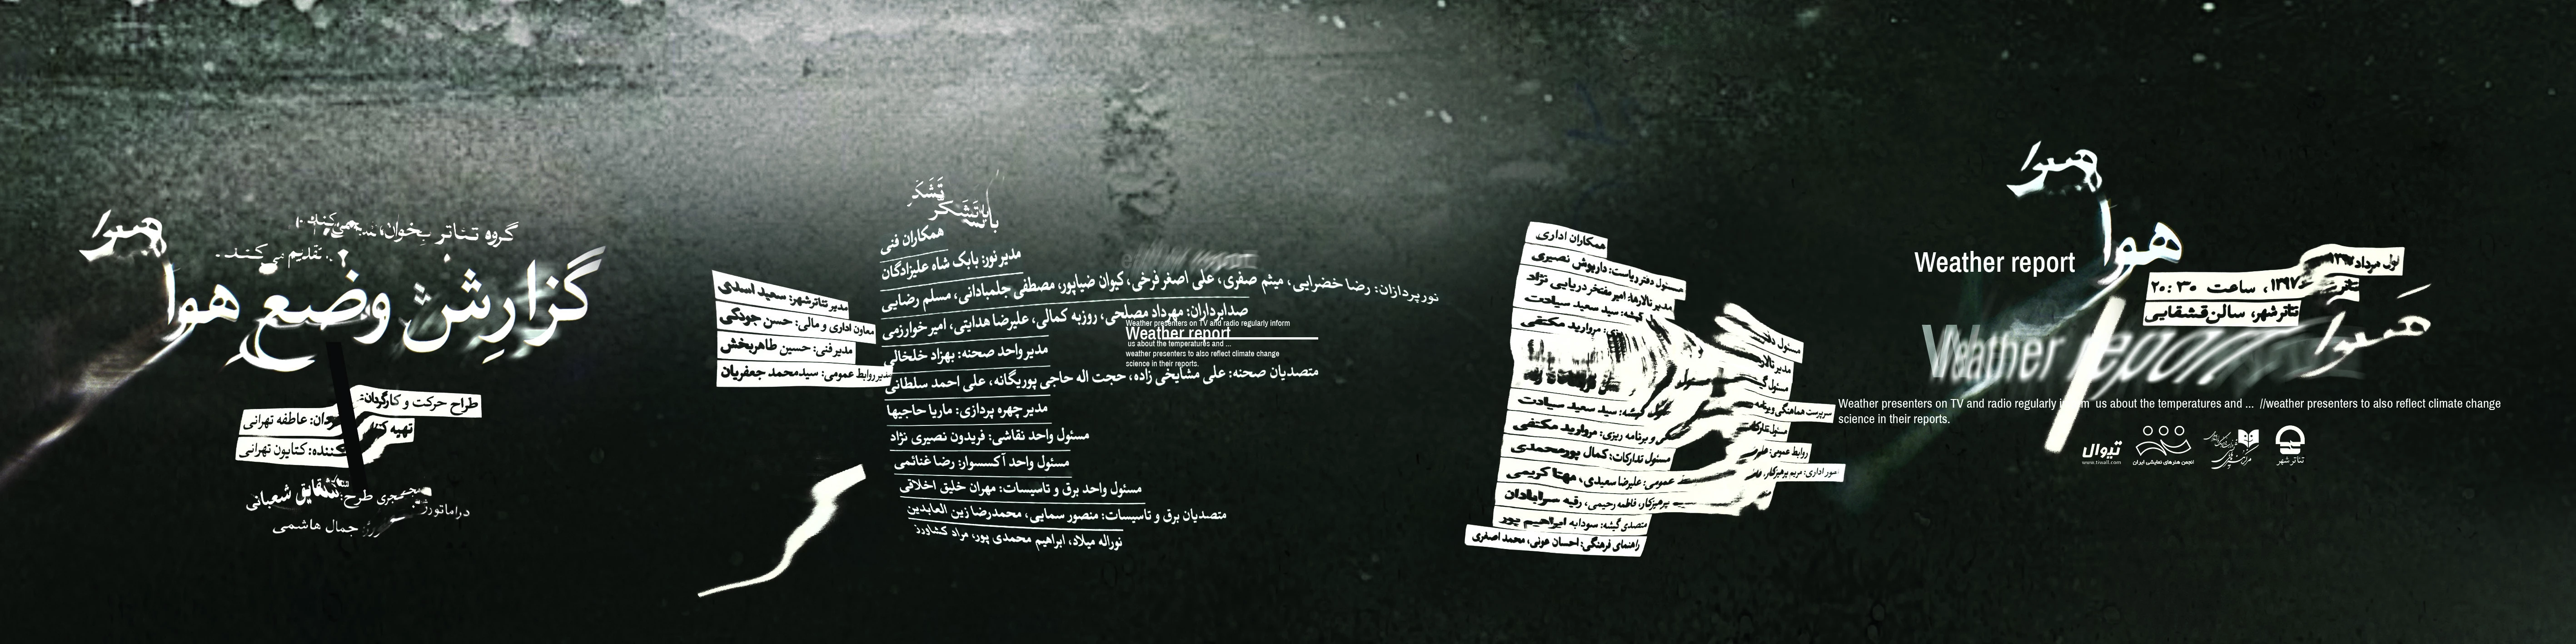 هوا
گروه تئاتر بخوان،
تقدیم می‌کند.
گزارش وضع هوا
طراح حرکت و کارگردان:
عاطفه تهرانی
تهیه
کننده: کتایون تهرانی
طرح: شقایق شعبانی
دراماتورژ: جمال هاشمی
مدیر تئاترشهر: سعید اسدی
معاون اداری و مالی: حسن جودکی
مدیر فنی: حسین طاهربخش
مدیر روابط عمومی: سیدمحمد جعفریان
باتشکر
تشکر
همکاران فنی
مدیر نور: بابک شاه علیزادگان
نورپردازان: رضا خضرایی، میثم صفری، علی اصغر فرخی، کیوان ضیاپور، مصطفی جلمبادانی، مسلم رضایی
صدابرداران: مهرداد مصلحی، روزبه کمالی، علیرضا هدایتی، امیر خوارزمی
مدیر واحد صحنه: بهزاد خلخالی
متصدیان صحنه: علی مشایخی زاده، حجت اله حاجی پوریگانه، علی احمد سلطانی
مدیر چهره پردازی: ماریا حاجیها
مسئول واحد نقاشی: فریدون نصیری نژاد
مسئول واحد آکسسوار: رضا غنائمی
مسئول واحد برق و تاسیسات: مهران خلیق اخلاقی
متصدیان برق و تاسیسات: منصور سمایی، محمدرضا زین العابدین
نوراله میلاد، ابراهیم محمدی پور، مراد کشاورز
Weather presenters on TV and radio regularly inform
Weather report
us about the temperatures and ...
weather presenters to also reflect climate change
science in their reports.
همکاران اداری
مسئول دفتر ریاست: داریوش نصیری
مدیر تالارها: امیر مفتخر دریایی نژاد
گیشه: سید سعید سیادت
ریزی: مروارید مکتفی
گیشه: سید سعید سیادت
و برنامه ریزی: مروارید مکتفی
مسئول تدارکات: کمال پورمحمدی
عمومی: علیرضا سعیدی، مهتا کریمی
پرهیزکار، فاطمه رحیمی، رقیه سرابادان
متصدی گیشه: سودابه ابراهیم پور
راهنمای فرهنگی: احسان عونی، محمد اصغری
مسئول
مدیر تالار
مسئول
سرپرست هماهنگی و برنامه
مسئول تدارکات
روابط عمومی:
امور اداری: مریم پرهیزکار،
هوا
هوا
Weather report
اول مرداد ۱۳۹۷
۱۳۹۷، ساعت ۲۰:۳۰
تئاترشهر، سالن قشقایی
هوا
Weather report
Weather presenters on TV and radio regularly inform us about the temperatures and ... //weather presenters to also reflect climate change
science in their reports.
تیوال
www.tiwall.com
انجمن هنرهای نمایشی ایران
تئاتر شهر